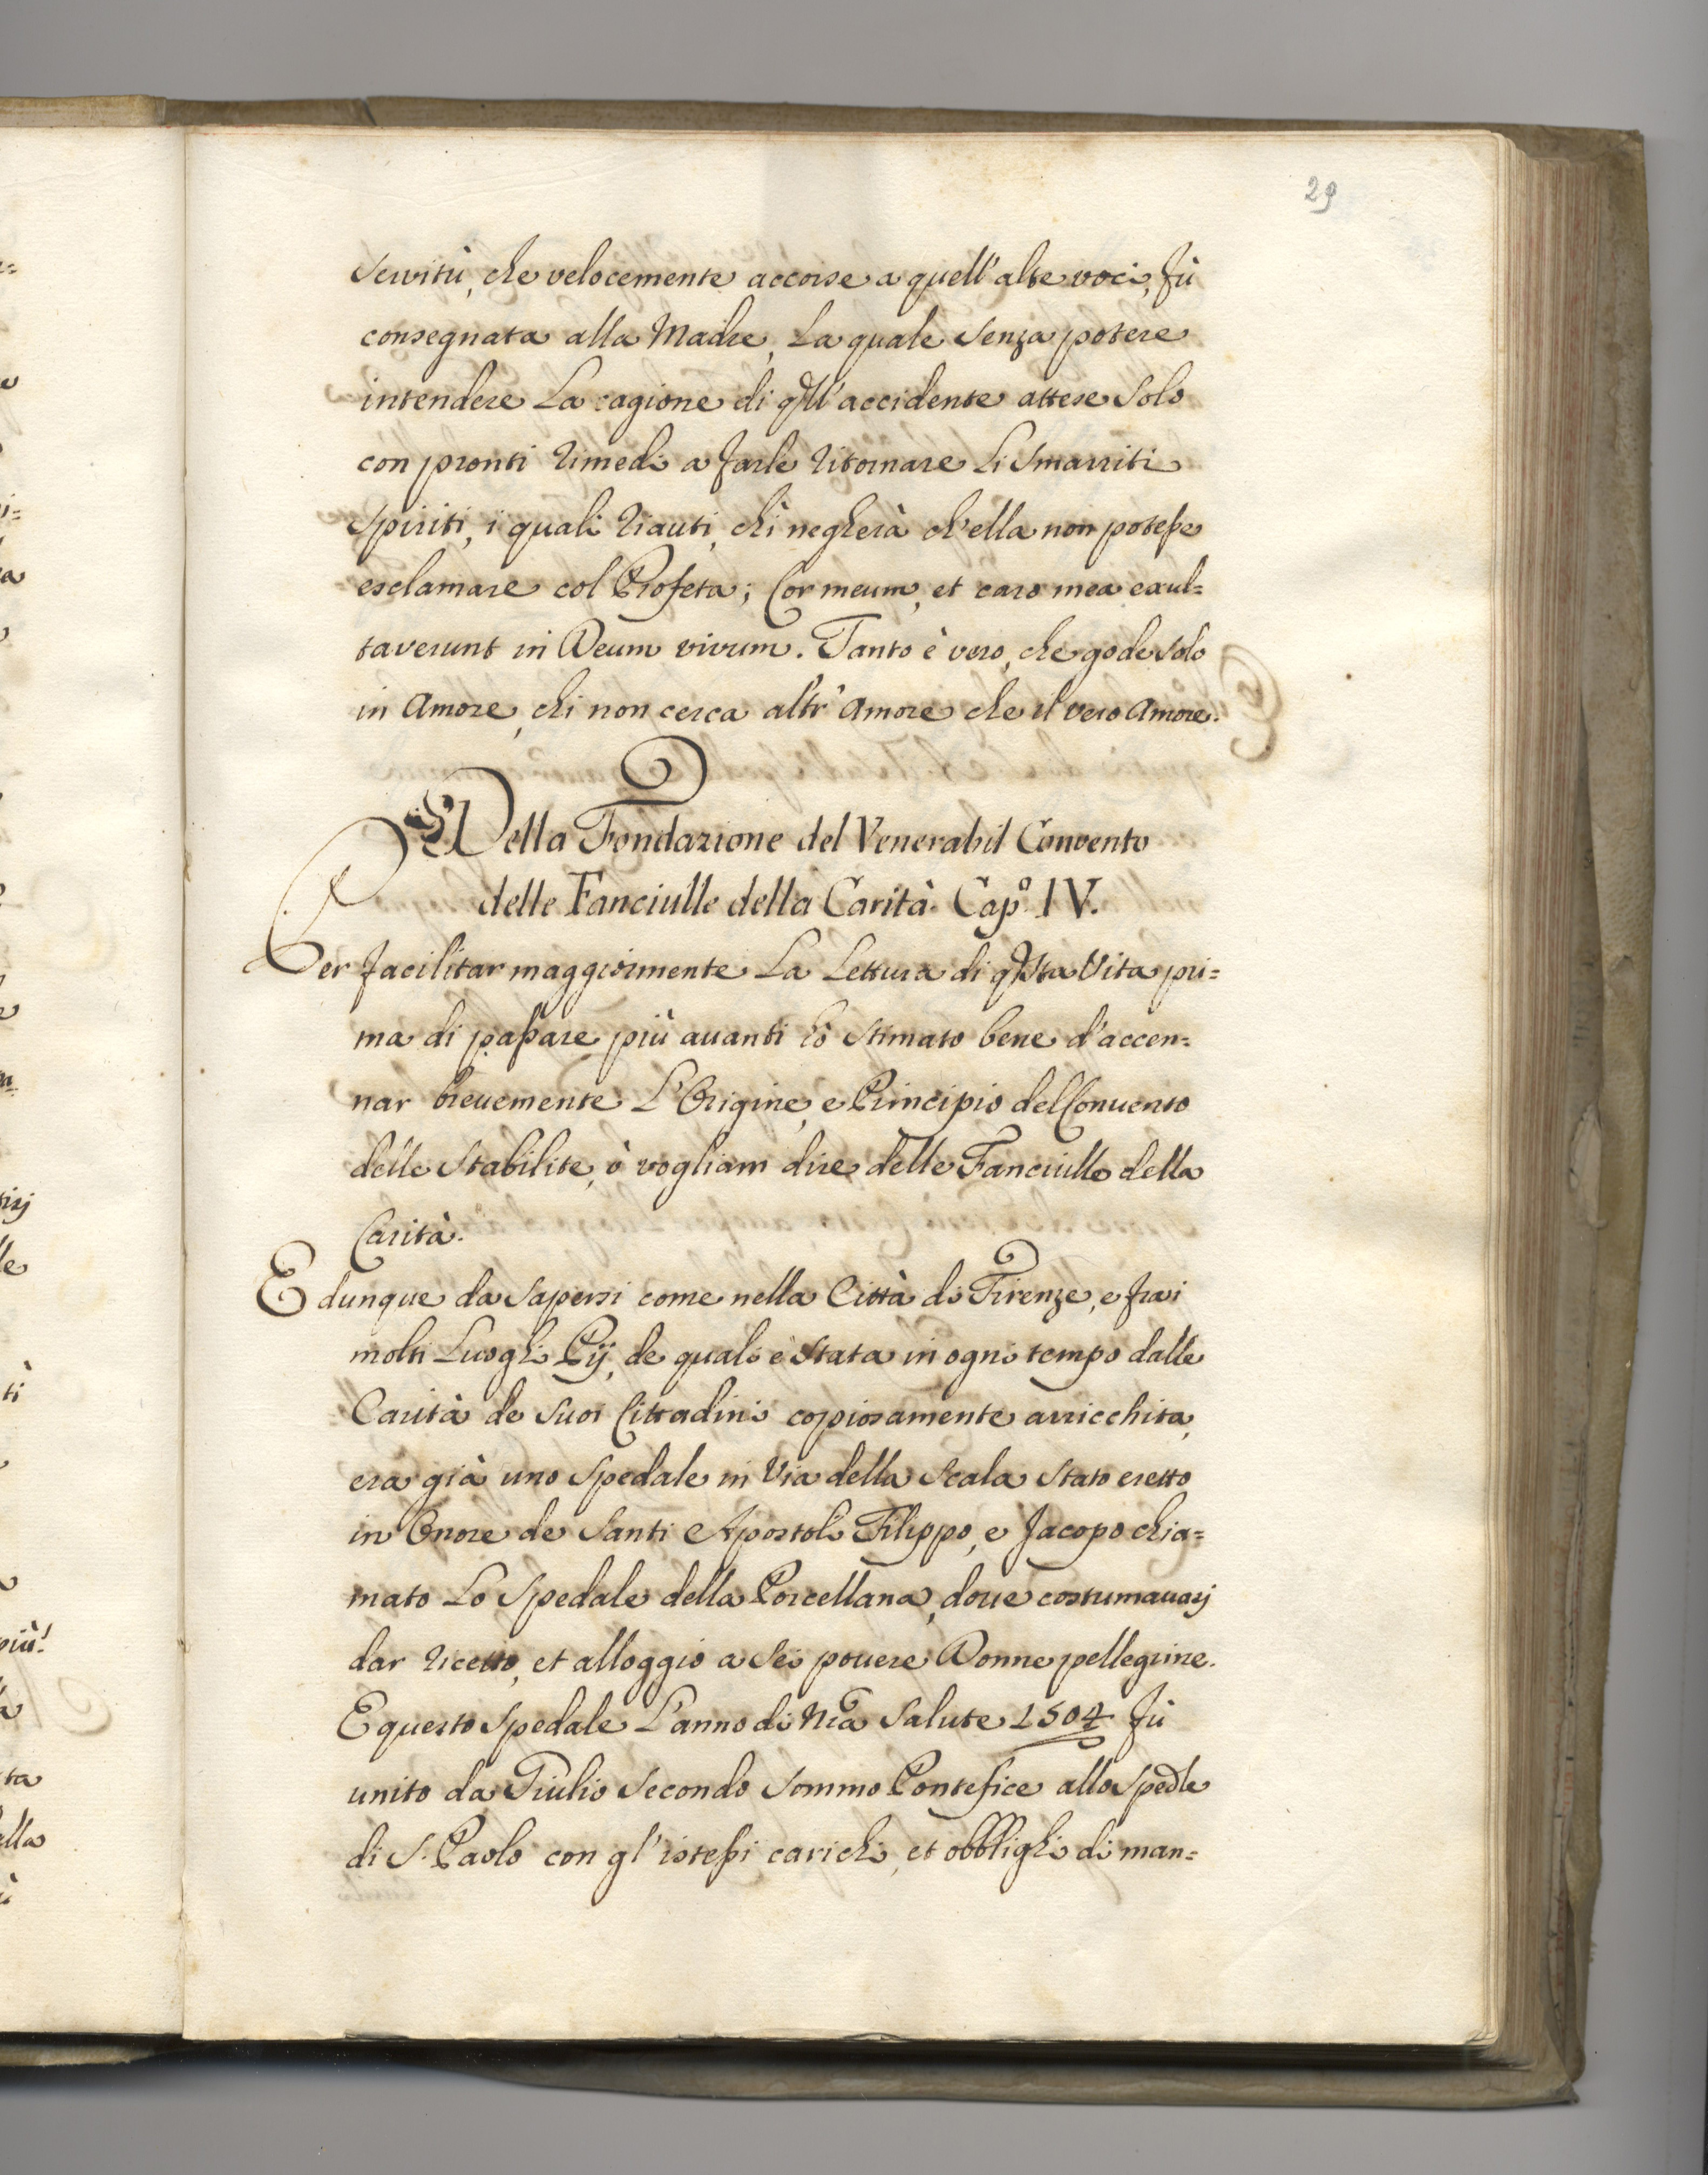 29
Servitù, che velocemente accorse a quell'alte voci, fù
consegnata alla Madre, La quale senza potere
intendere La cagione di qll'accidente attese solo
con pronti rimedi a farle ritornare li smarriti
spiriti, i quali riauti, chi negherà ch'ella non potesse
esclamare col Profeta; Cor meum, et caro mea exul=
taverunt in Deum vivum. Tanto è vero, che gode solo
in Amore, chi non cerca altr'Amore che il vero Amore.
Della Fondazione del Venerabil Convento
delle Fanciulle della Carità. Cap.º IV.
Per facilitar maggiormente La Lettura di qsta Vita pri=
ma di passare più auanti hò stimato bene d'accen=
nar breuemente L'Origine, e Principio del Conuento
delle Stabilite, ò vogliam dire delle Fanciulle della
Carità.
E dunque da sapersi come nella Città di Firenze, e frai
molti Luoghi Pij, de quali è stata in ogni tempo dalle
Carità de suoi Cittadini copiosamente arricchita,
era già uno spedale in Via della Scala stato eretto
in Onore de Santi Apostoli Filippo, e Jacopo chia=
mato Lo Spedale della Porcellana, doue costumauasj
dar ricetto, et alloggio a Sei pouere Donne pellegrine.
E questo spedale L'anno di Nra Salute 1504 fù
unito da Giulio Secondo Sommo Pontefice allo Spedle
di S. Paolo con gl'istessi carichi, et obblighi di man=